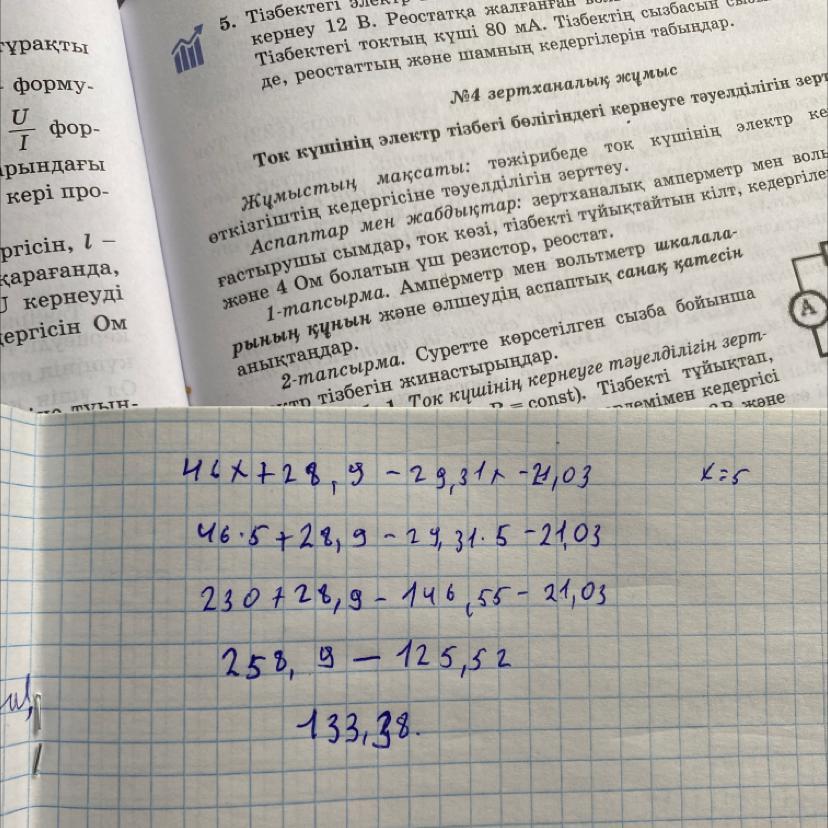 тұрақты
форму-
U
I
фор-
арындағы
кері про-
ргісін, l –
қарағанда,
U кернеуді
дергісін Ом
5. Тізбектегі
кернеу 12 В. Реостатқа жалғанған
Тізбектегі токтың күші 80 мА. Тізбектің сызбасын
де, реостаттың және шамның кедергілерін табыңдар.
№4 зертханалық жұмыс
Ток күшінің электр тізбегі бөлігіндегі кернеуге тәуелділігін зерт
Жұмыстың мақсаты: тәжірибеде ток күшінің электр ке
өткізгіштің кедергісіне тәуелділігін зерттеу.
Аспаптар мен жабдықтар: зертханалық амперметр мен воль
ғастырушы сымдар, ток көзі, тізбекті тұйықтайтын кілт, кедергілер
және 4 Ом болатын үш резистор, реостат.
1-тапсырма. Амперметр мен вольтметр шкалала-
рының құнын және өлшеудің аспаптық санақ қатесін
анықтаңдар.
2-тапсырма. Суретте көрсетілген сызба бойынша
тізбегін жинастырыңдар.
1. Ток күшінің кернеуге тәуелділігін зерт-
= const). Тізбекті тұйықтап,
кедергісі
және
A
46x+28,9-29,31x-21,03 x=5
46·5+28,9-29,31·5-21,03
230+28,9-146,55-21,03
258,9-125,52
133,38.